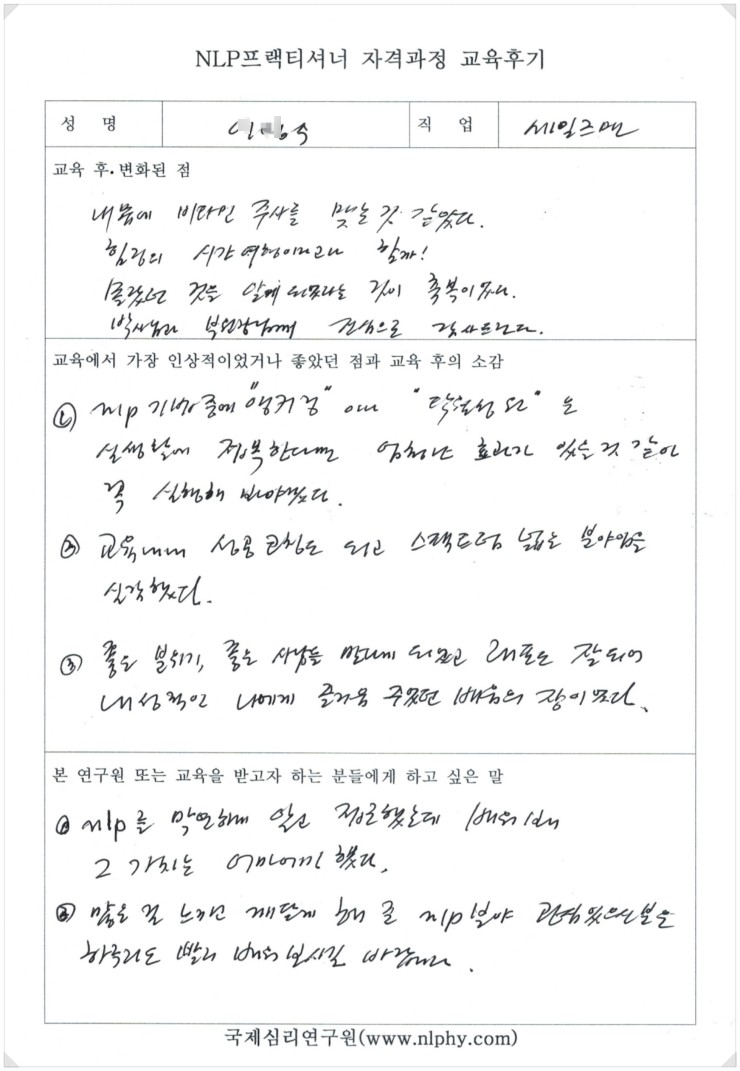 NLP프랙티셔너 자격과정 교육후기
성 명
직 업 세일즈맨
교육 후·변화된 점
내 몸에 비타민 주사를 맞는 것 같았다.
힐링의 시간 여행이라고나 할까!
몰랐던 것을 알게 되었다는 것이 축복이었다.
박사님과 부원장님께 진심으로 감사드린다.
교육에서 가장 인상적이었거나 좋았던 점과 교육 후의 소감
① nlp 기법 중에 "앵커링" 이나 " " 은
실생활에 접목한다면 엄청난 효과가 있을 것 같아
꼭 실행해 봐야겠다.
② 교육내내 성공코칭도 되고 스펙트럼 넓은 분야임을
실감했다.
③ 좋은 분위기, 좋은 사람들 만나게 되었고 래포도 잘되어
내성적인 나에게 즐거움 주었던 배움의 장이었다.
본 연구원 또는 교육을 받고자 하는 분들에게 하고 싶은 말
① nlp를 막연하게 알고 접근했는데 배워보니
그 가치는 어마어마 했다.
② 많은 걸 느끼고 깨닫게 해 줄 nlp분야 관심있으신분은
하루라도 빨리 배워보시길 바랍니다.
국제심리연구원(www.nlphy.com)